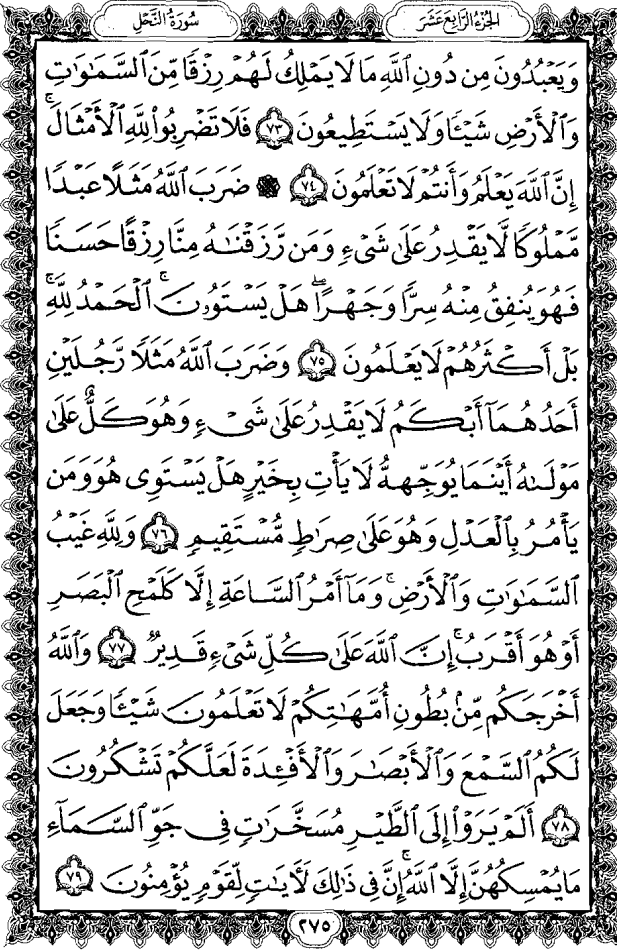 الجزء الرابع عشر
سورة النحل
وَيَعْبُدُونَ مِن دُونِ ٱللَّهِ مَا لَا يَمْلِكُ لَهُمْ رِزْقًا مِّنَ ٱلسَّمَٰوَٰتِ
وَٱلْأَرْضِ شَيْـًٔا وَلَا يَسْتَطِيعُونَ ٧٣ فَلَا تَضْرِبُوا۟ لِلَّهِ ٱلْأَمْثَالَ ۚ
إِنَّ ٱللَّهَ يَعْلَمُ وَأَنتُمْ لَا تَعْلَمُونَ ٧٤ ۞ ضَرَبَ ٱللَّهُ مَثَلًا عَبْدًا
مَّمْلُوكًا لَّا يَقْدِرُ عَلَىٰ شَىْءٍ وَمَن رَّزَقْنَٰهُ مِنَّا رِزْقًا حَسَنًا
فَهُوَ يُنفِقُ مِنْهُ سِرًّا وَجَهْرًا ۖ هَلْ يَسْتَوُۥنَ ۚ ٱلْحَمْدُ لِلَّهِ ۚ
بَلْ أَكْثَرُهُمْ لَا يَعْلَمُونَ ٧٥ وَضَرَبَ ٱللَّهُ مَثَلًا رَّجُلَيْنِ
أَحَدُهُمَآ أَبْكَمُ لَا يَقْدِرُ عَلَىٰ شَىْءٍ وَهُوَ كَلٌّ عَلَىٰ
مَوْلَىٰهُ أَيْنَمَا يُوَجِّههُّ لَا يَأْتِ بِخَيْرٍ هَلْ يَسْتَوِى هُوَ وَمَن
يَأْمُرُ بِٱلْعَدْلِ وَهُوَ عَلَىٰ صِرَٰطٍ مُّسْتَقِيمٍ ٧٦ وَلِلَّهِ غَيْبُ
ٱلسَّمَٰوَٰتِ وَٱلْأَرْضِ ۚ وَمَآ أَمْرُ ٱلسَّاعَةِ إِلَّا كَلَمْحِ ٱلْبَصَرِ
أَوْ هُوَ أَقْرَبُ ۚ إِنَّ ٱللَّهَ عَلَىٰ كُلِّ شَىْءٍ قَدِيرٌ ٧٧ وَٱللَّهُ
أَخْرَجَكُم مِّنۢ بُطُونِ أُمَّهَٰتِكُمْ لَا تَعْلَمُونَ شَيْـًٔا وَجَعَلَ
لَكُمُ ٱلسَّمْعَ وَٱلْأَبْصَٰرَ وَٱلْأَفْـِٔدَةَ لَعَلَّكُمْ تَشْكُرُونَ
٧٨ أَلَمْ يَرَوْا۟ إِلَى ٱلطَّيْرِ مُسَخَّرَٰتٍ فِى جَوِّ ٱلسَّمَآءِ
مَا يُمْسِكُهُنَّ إِلَّا ٱللَّهُ ۗ إِنَّ فِى ذَٰلِكَ لَءَايَٰتٍ لِّقَوْمٍ يُؤْمِنُونَ ٧٩
٢٧٥